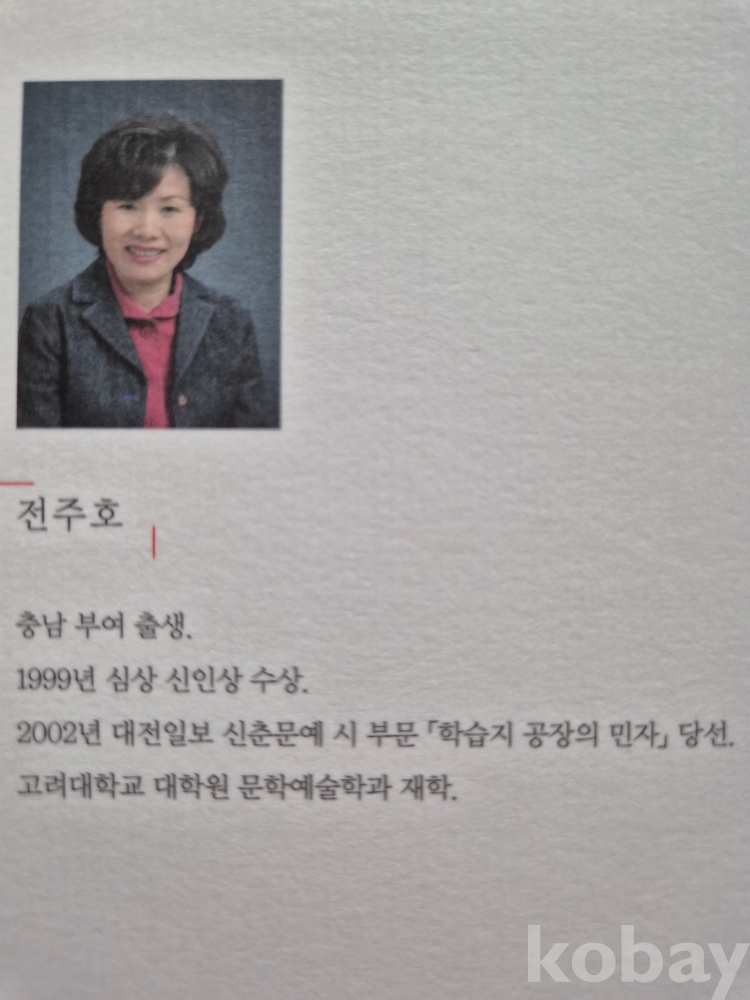 전주호
충남 부여 출생.
1999년 심상 신인상 수상.
2002년 대전일보 신춘문예 시 부문 「학습지 공장의 민자」 당선.
고려대학교 대학원 문학예술학과 재학.
kobay